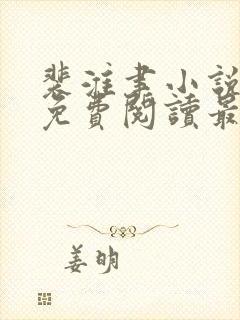 裴淮書小說
免費閱讀最
姜明